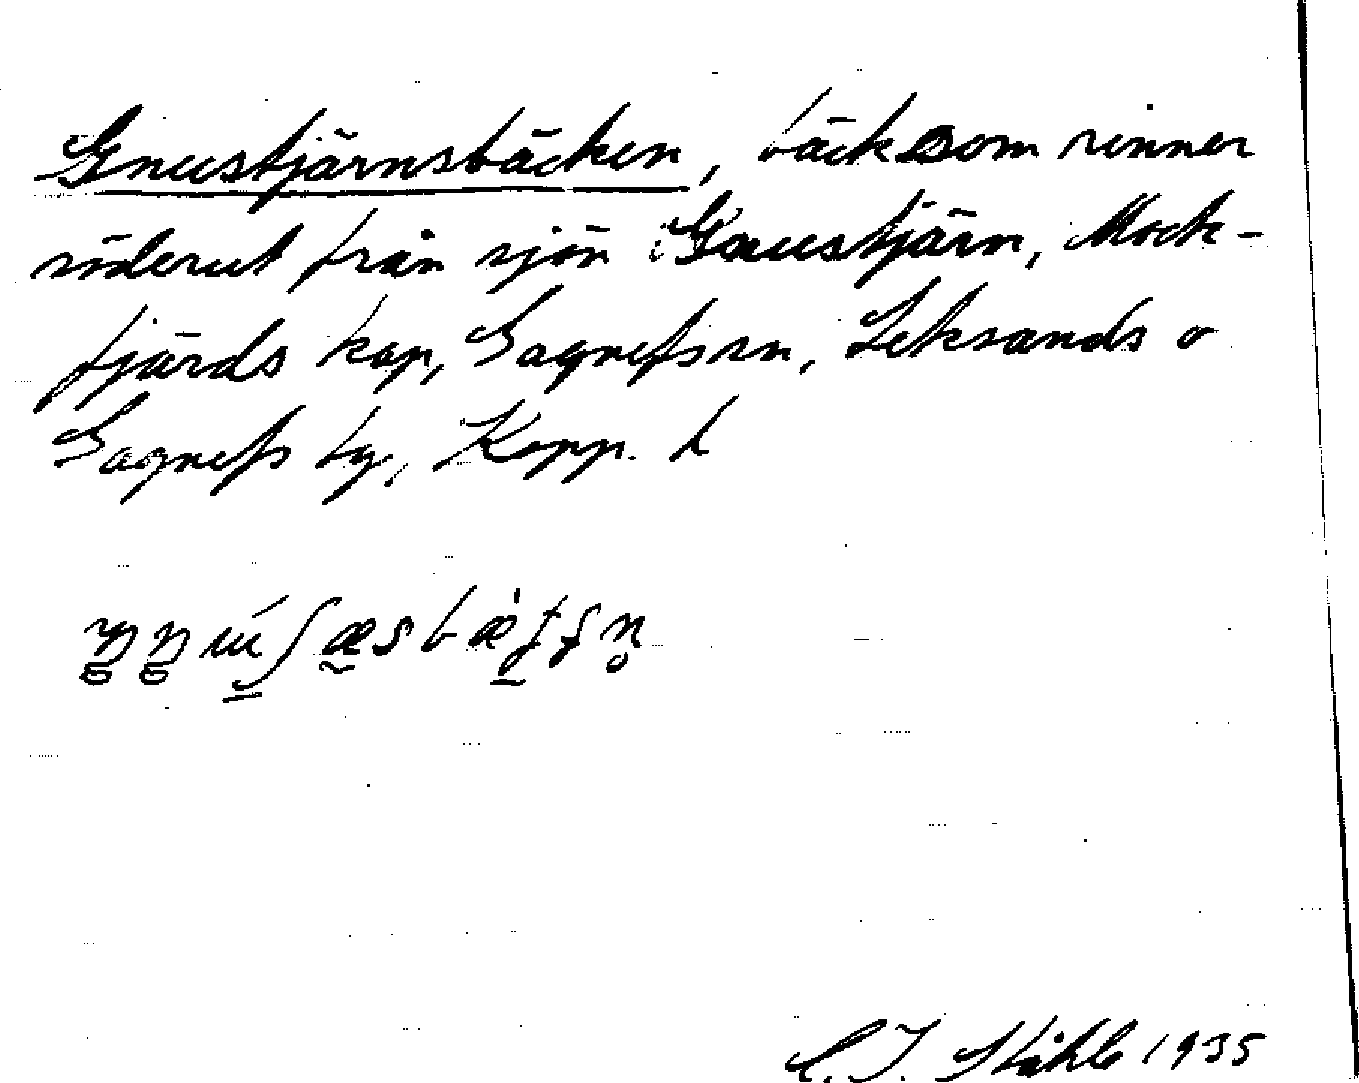 Gnustjärnsbäcken, bäck som rinner
söderut från sjön Gnustjärn, Mock-
fjärds kap, Gagnefs sn, Leksands o
Gagnefs tg, Kopp. l
C. I. Ståhle 1935